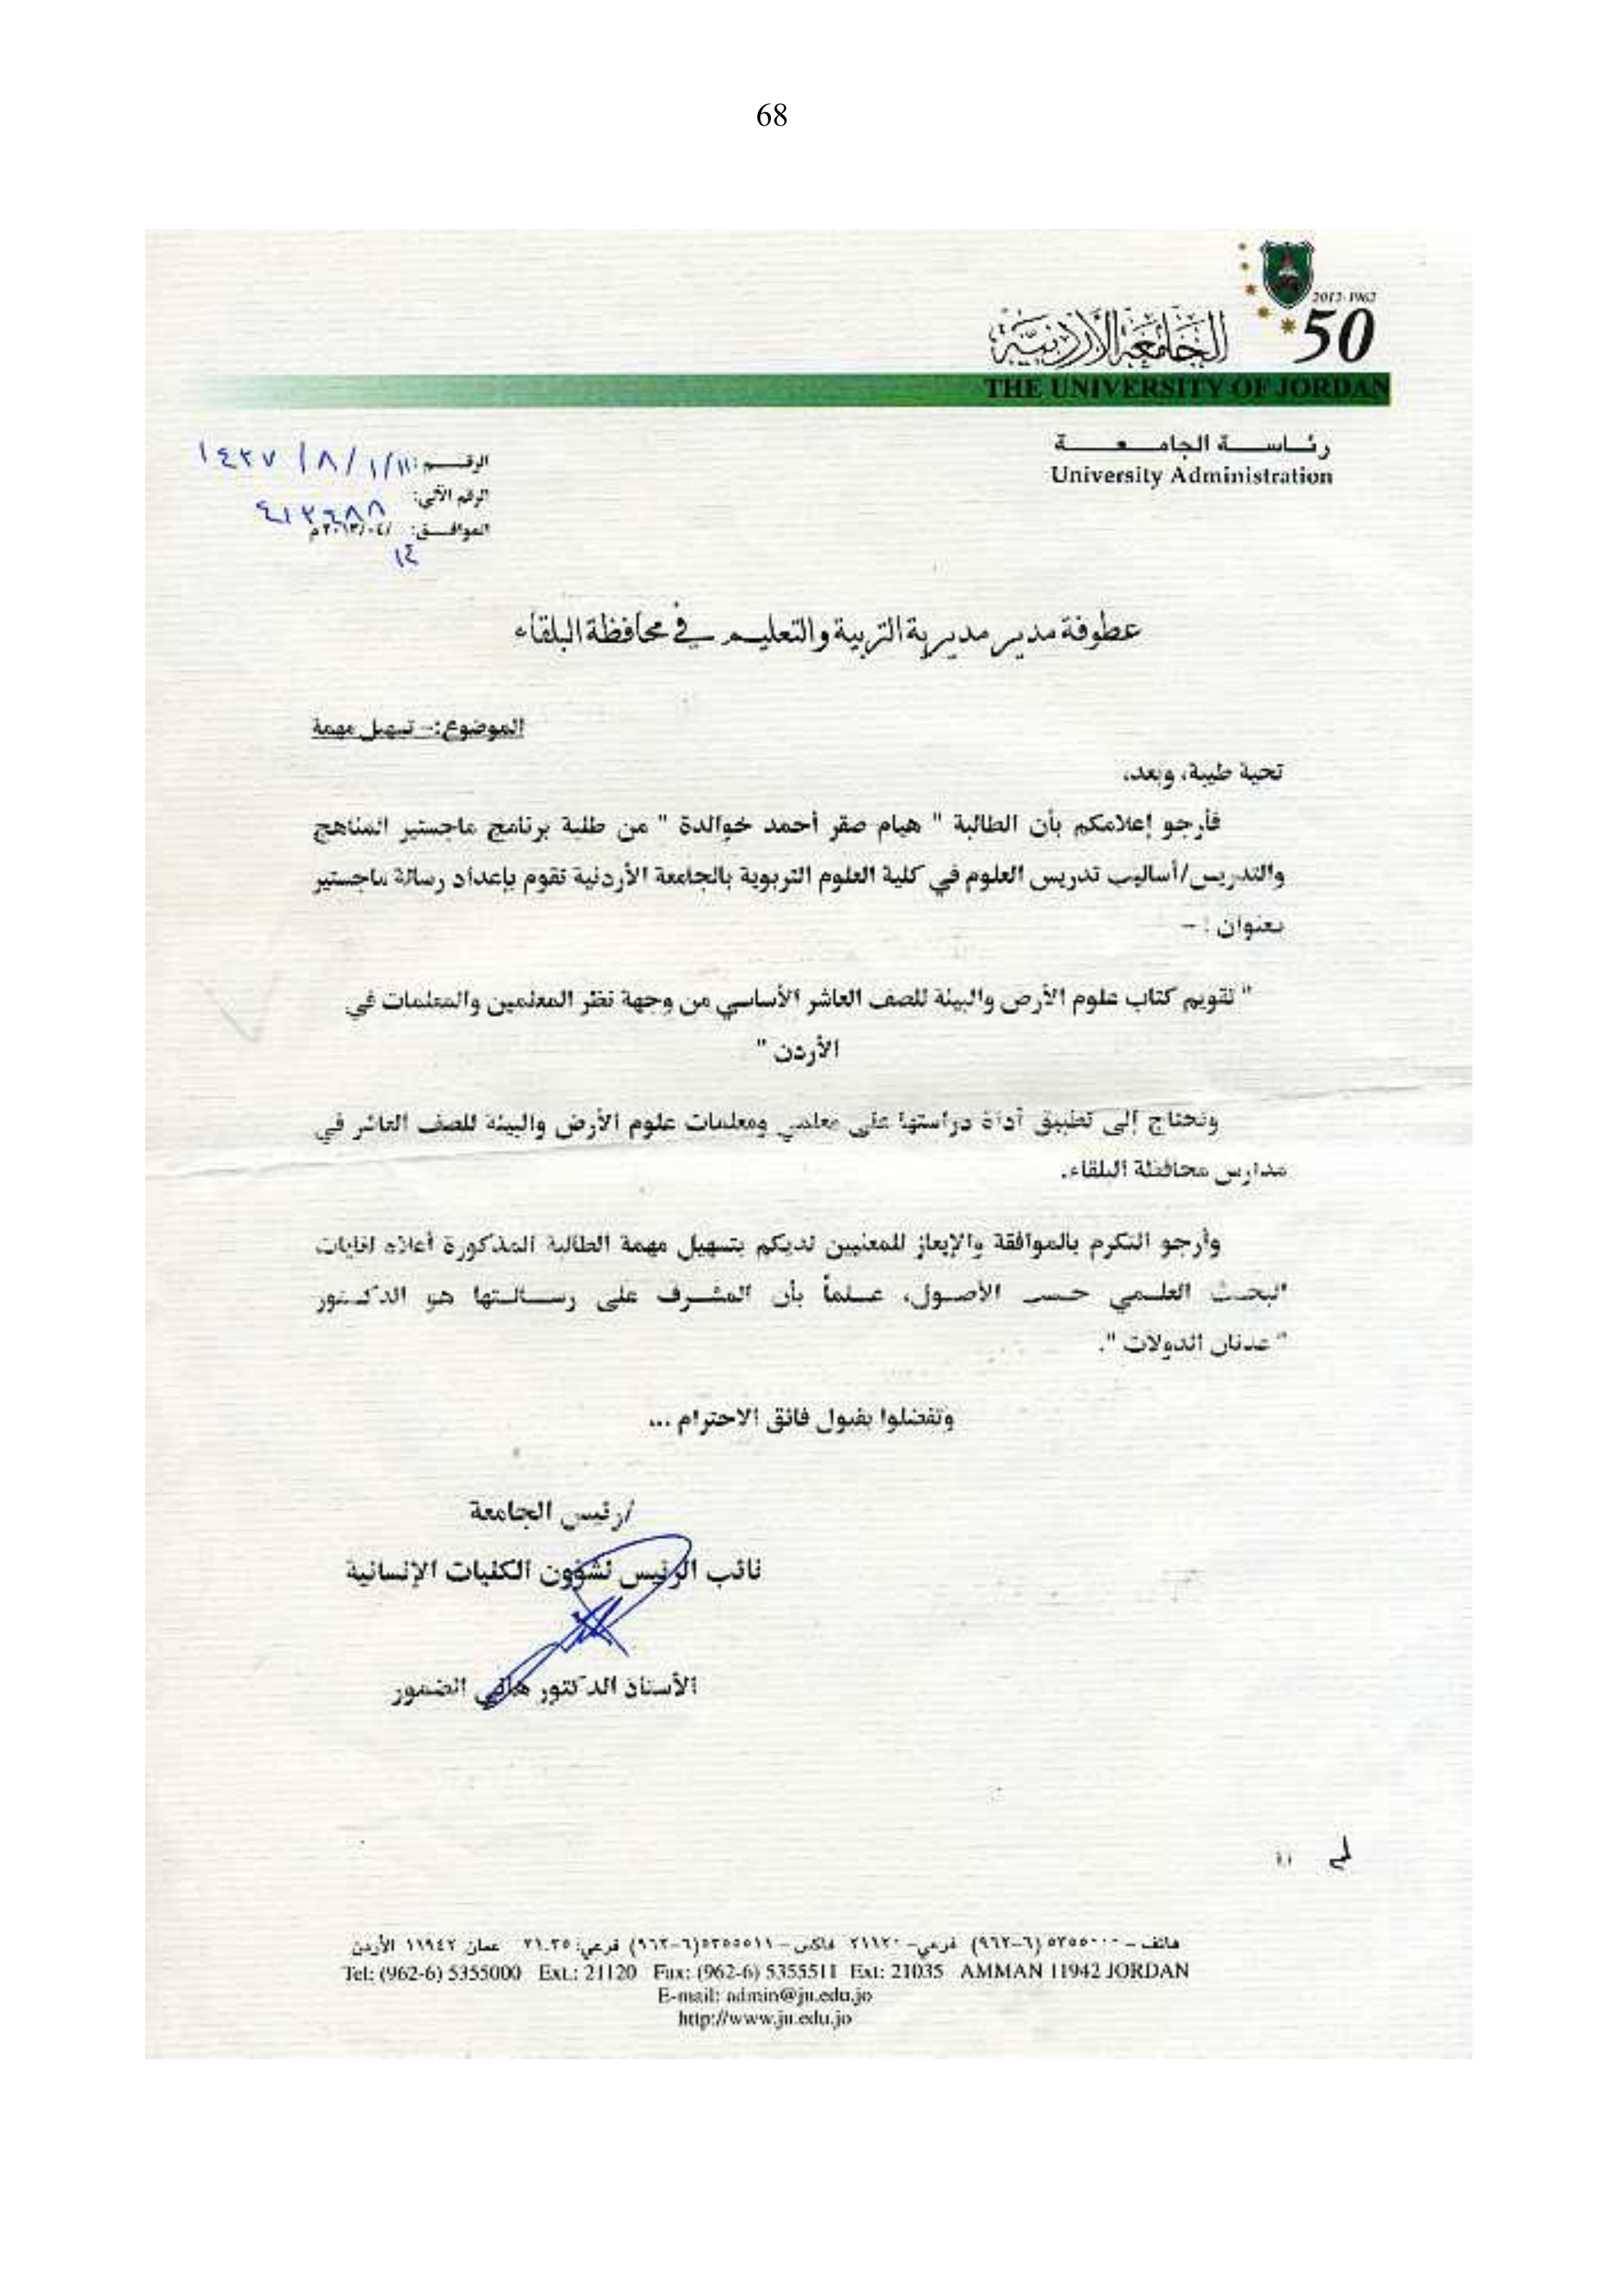 68
2012-1962
50
الجامعة الأردنية
THE UNIVERSITY OF JORDAN
رئاسة الجامعة
University Administration
الرقم: ١٤٢٧ /٨/ ١/١١
الرقم الآلي: ٤١٢٤٨٨
الموافق: /٢٠١٣/٠٤م
١٤
عطوفة مدير مديرية التربية والتعليم في محافظة البلقاء
الموضوع:- تسهيل مهمة
تحية طيبة، وبعد،
فأرجو إعلامكم بأن الطالبة " هيام صقر أحمد خوالدة " من طلبة برنامج ماجستير المناهج
والتدريس/أساليب تدريس العلوم في كلية العلوم التربوية بالجامعة الأردنية تقوم بإعداد رسالة ماجستير
بعنوان : -
" تقويم كتاب علوم الأرض والبيئة للصف العاشر الأساسي من وجهة نظر المعلمين والمعلمات في
الأردن "
وتحتاج إلى تطبيق أداة دراستها على معلمي ومعلمات علوم الأرض والبيئة للصف العاشر في
مدارس محافظة البلقاء.
وأرجو التكرم بالموافقة والإيعاز للمعنيين لديكم بتسهيل مهمة الطالبة المذكورة أعلاه لغايات
البحث العلمي حسب الأصول، علماً بأن المشرف على رسالتها هو الدكتور
" عدنان الدولات ".
وتفضلوا بقبول فائق الاحترام ...
/رئيس الجامعة
نائب الرئيس لشؤون الكليات الإنسانية
الأستاذ الدكتور هاني الضمور
هاتف – ٥٣٥٥٠٠٠ (٦–٩٦٢) فرعي– ٢١١٢٠ فاكس – ٥٣٥٥٥١١(٦–٩٦٢) فرعي: ٢١٠٣٥ عمان ١١٩٤٢ الأردن
Tel: (962-6) 5355000 Ext.: 21120 Fax: (962-6) 5355511 Ext: 21035 AMMAN 11942 JORDAN
E-mail: admin@ju.edu.jo
http://www.ju.edu.jo